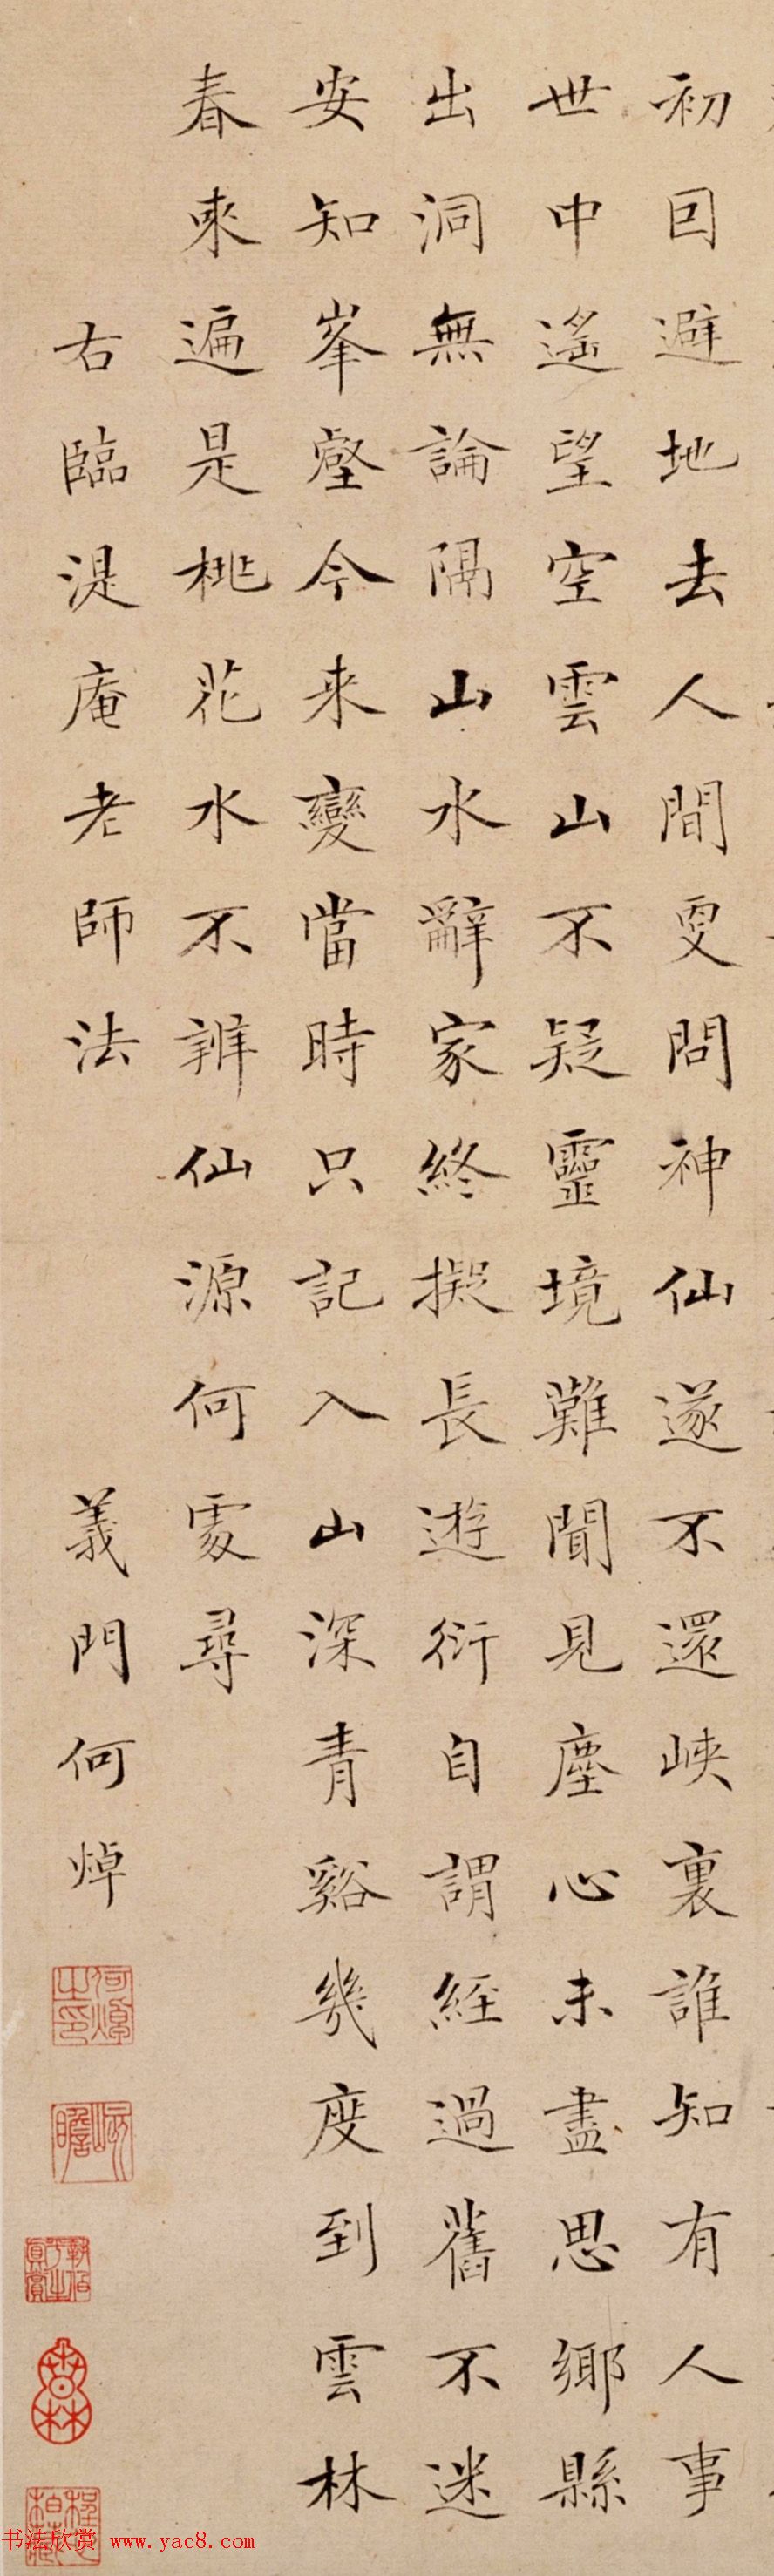 初因避地去人間更問神仙遂不還峽裏誰知有人事
世中遙望空雲山不疑靈境難聞見塵心未盡思鄉縣
出洞無論隔山水辭家終擬長遊衍自謂經過舊不迷
安知峯壑今来變當時只記入山深青谿幾度到雲林
春來遍是桃花水不辨仙源何處尋
右臨湜庵老師法
義門何焯
何焯之印
香林
书法欣赏 www.yac8.com